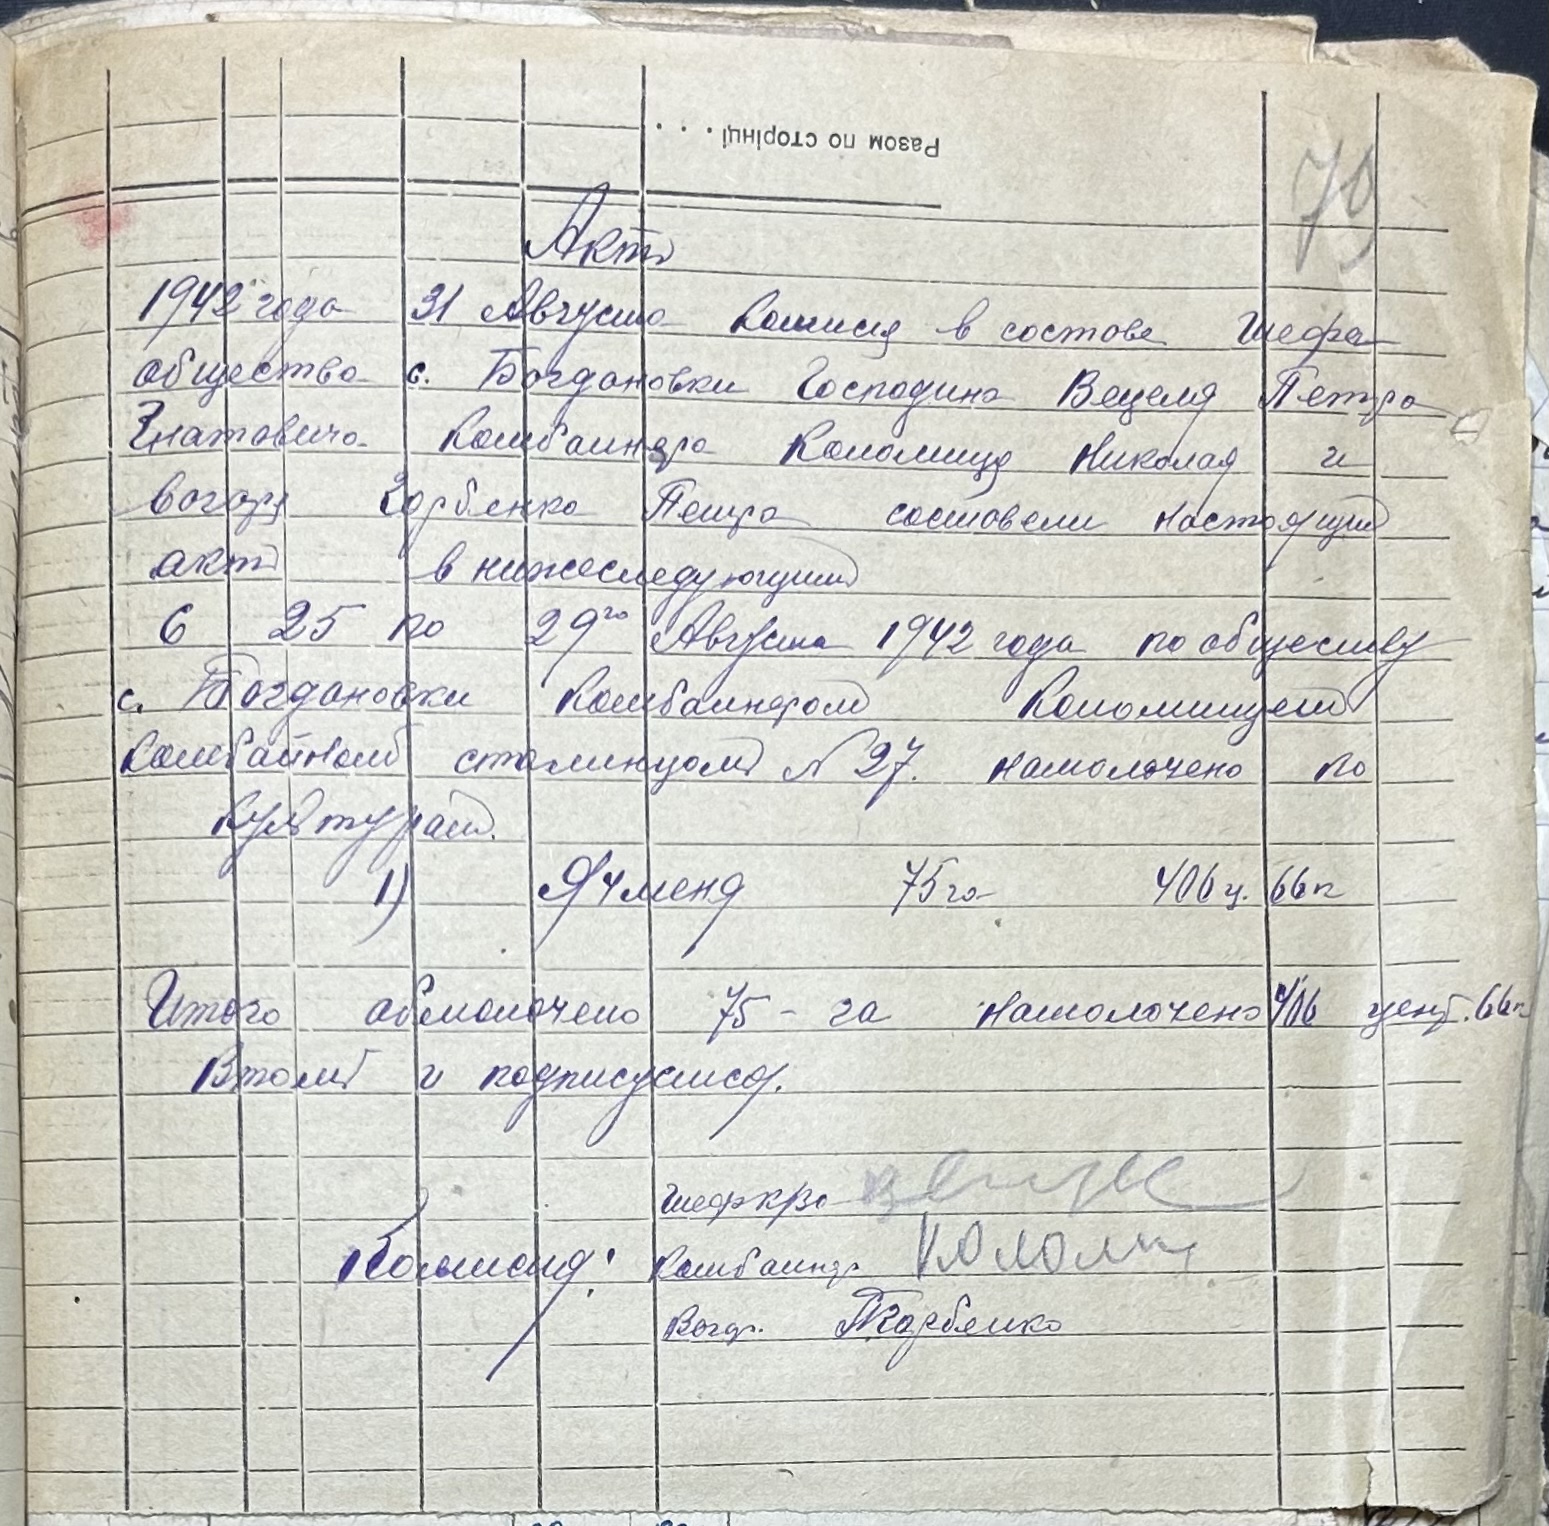 Разом по сторінці . . .
79
Акт
1942 года 31 Августа комисия в состове Шефа
общества с. Богдановки Господина Вецеля Петра
Гнатовича Комбаинера Коломице Николая и
вогаря Горбенко Петра состовели настоящий
акт в нижеследующим
С 25 по 29го Августа 1942 года по обществу
с. Богдановки Комбаинером Коломицем
Комбайном сталинцом N 27. намолочено по
культурам.
1) Ячменя 75 га 406 ц. 66 к
Итого абмолочено 75 - га намолочено 406 цент. 66 к
Втом и подписуемся.
Шеф
Комисия: Комбаинер Колом
Вогар. Горбенко